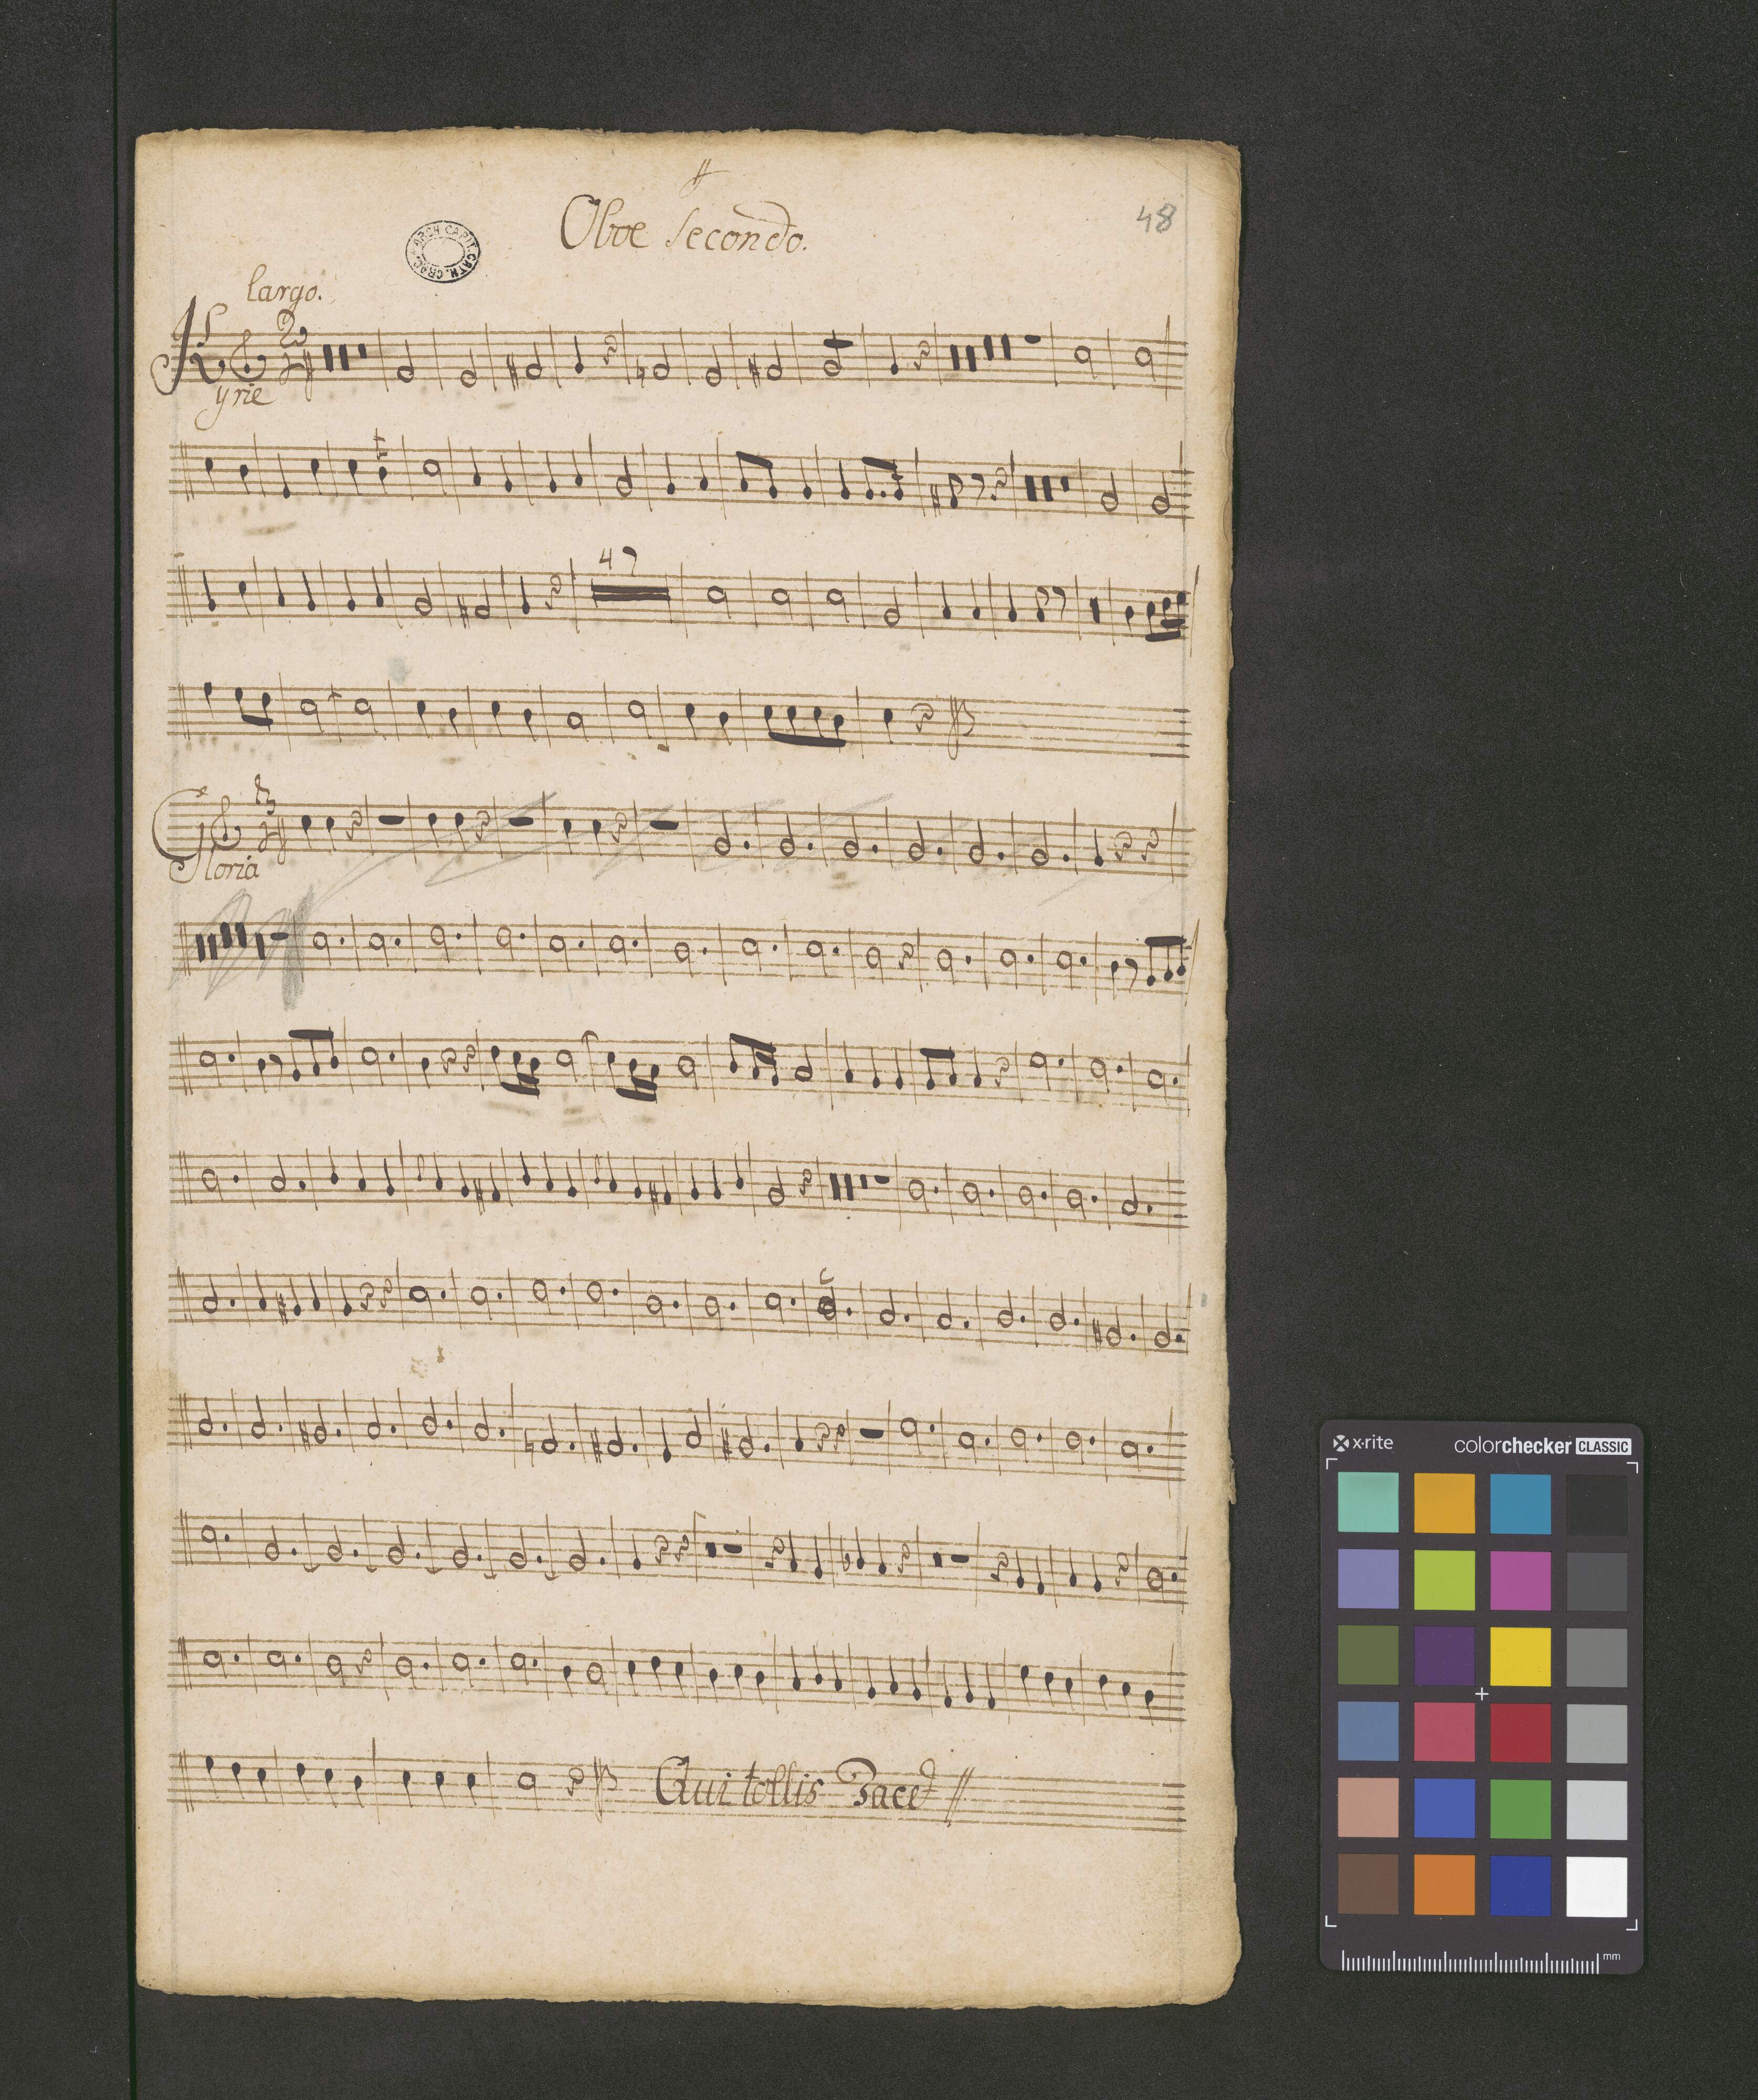 Oboe Secondo.
48
ARCH. CAPIT. CATH. CRAC.
largo.
Kyrie
47
Gloria
Qui tollis Tacet //
x·rite
colorchecker CLASSIC
mm